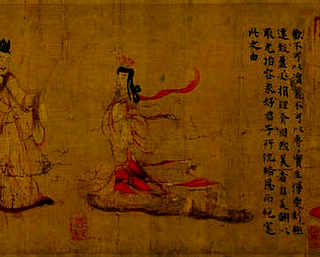 歡不可以瀆寵不可以專實生慢愛則極
遷致盈必損理有固然美者自美翩以
取尤冶容求好君子所讎結恩而絕寔
此之由